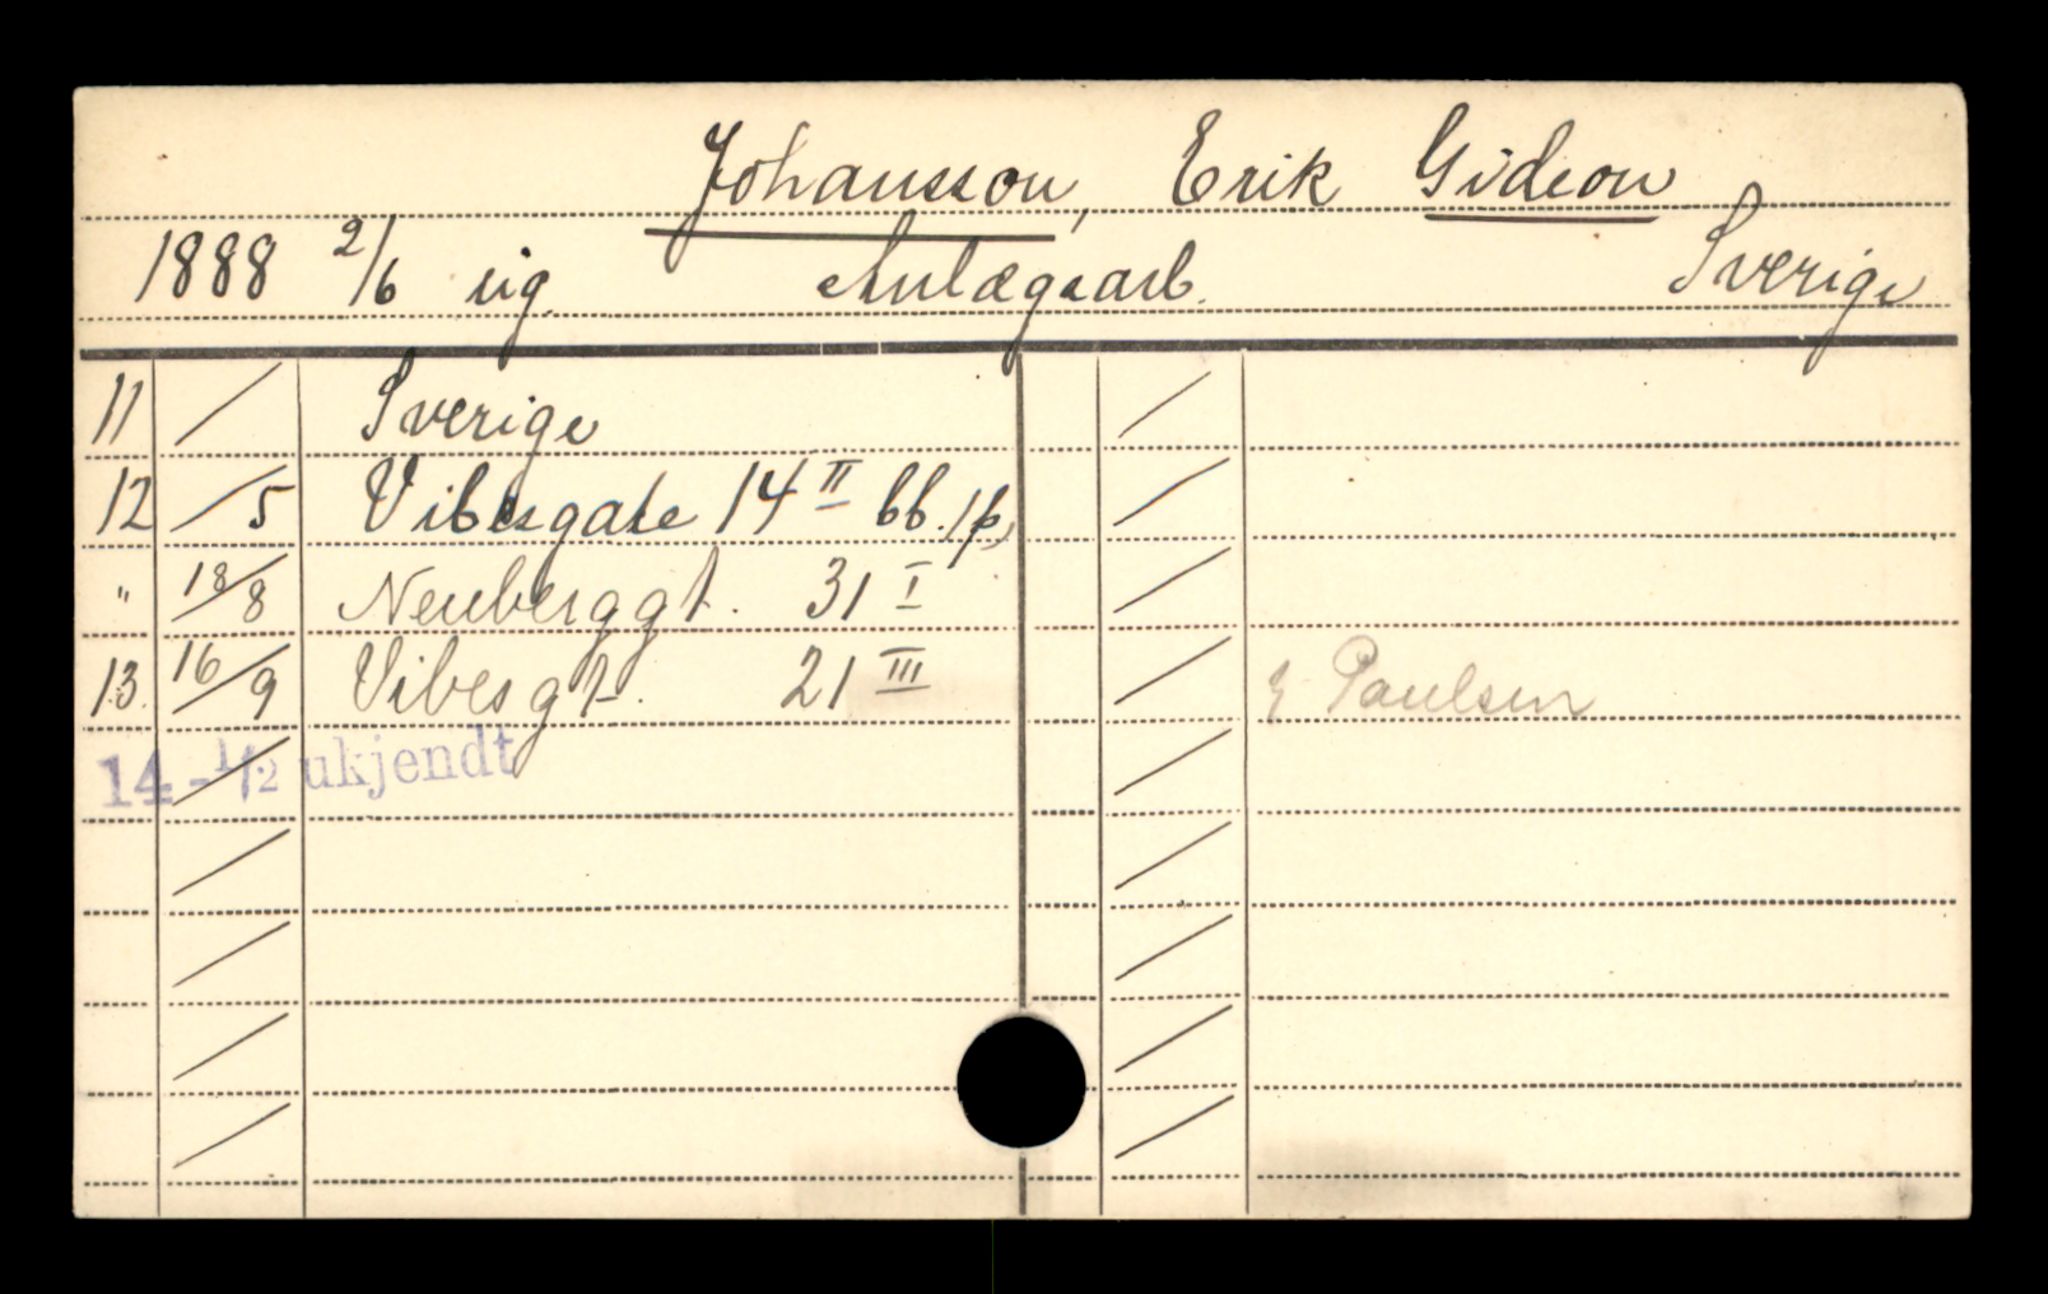 Johansson, Erik Gideon
1888 2/6 ug. Anlægsarb. Sverige
11 / Sverige
12 /5 Vibesgate 14 II bb.
" 18/8 Neuberggt. 31 I
13. 16/9 Vibesgt. 21 III
Paulsen
14 - 1/2 ukjendt